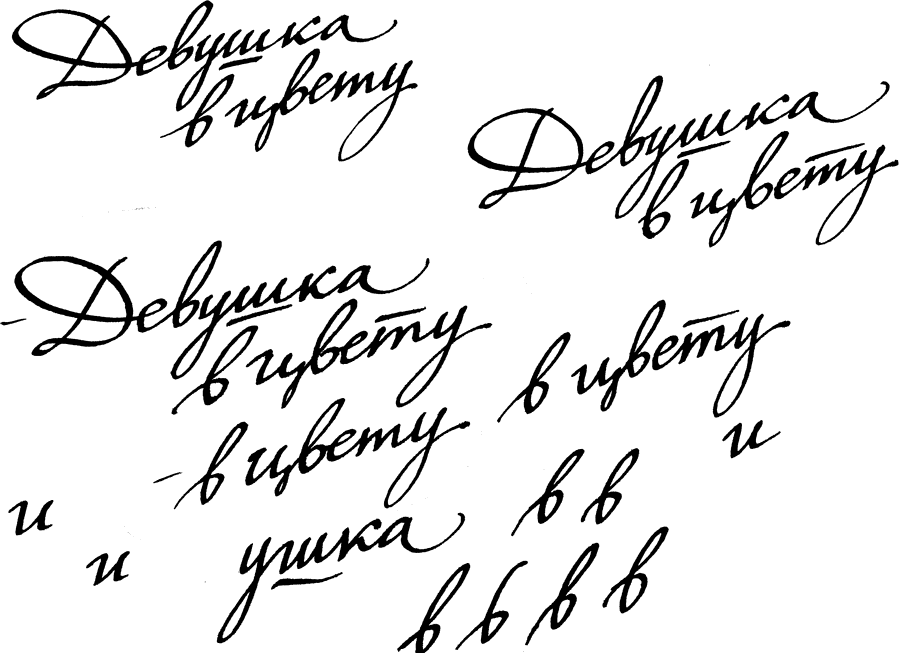 Девушка
в цвету
Девушка
в цвету
Девушка
в цвету
в цвету
в цвету
и
в в
и
ушка
и
в в в в